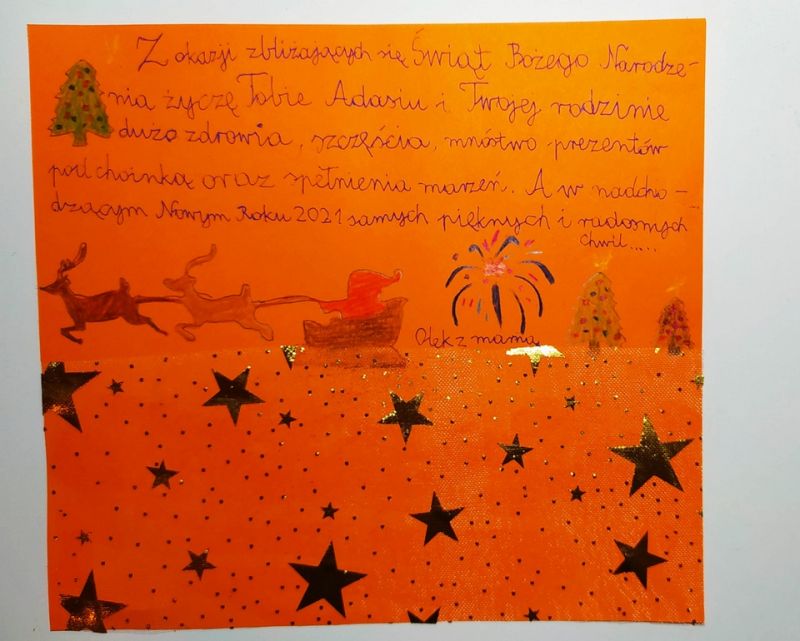 Z okazji zbliżających się Świąt Bożego Narodze-
nia życzę Tobie Adasiu i Twojej rodzinie
dużo zdrowia, szczęścia, mnóstwo prezentów
pod choinką oraz spełnienia marzeń. A w nadcho-
dzącym Nowym Roku 2021 samych pięknych i radosnych
chwil.....
Olek z mamą